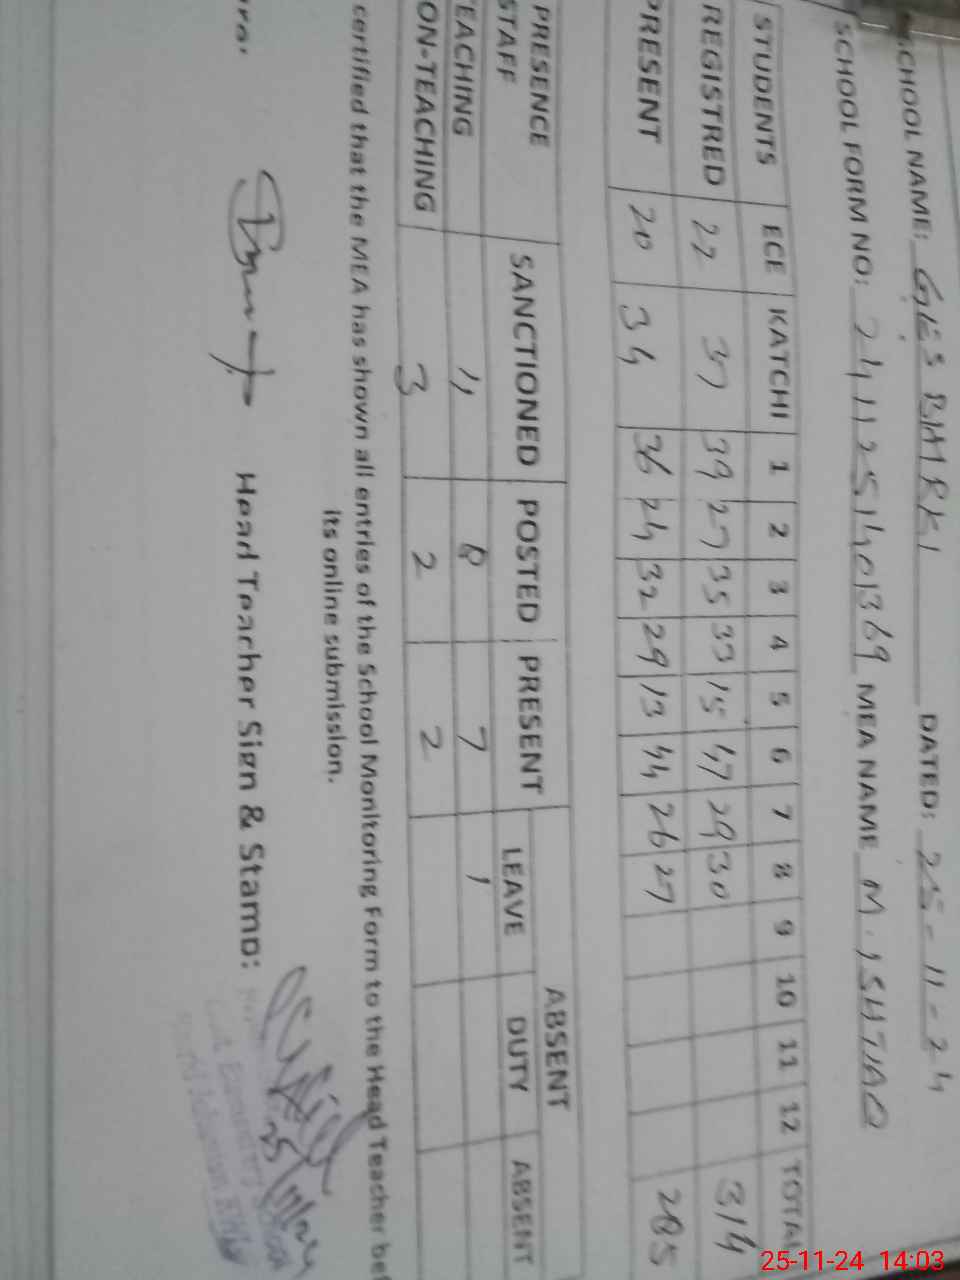 SCHOOL NAME: GES BHIRKI DATED: 25-11-24
SCHOOL FORM NO: 2411251401369 MEA NAME M. ISHTIAQ
STUDENTS ECE KATCHI 1 2 3 4 5 6 7 8 9 10 11 12 TOTAL
REGISTRED 22 37 39 27 35 33 15 47 29 30 314
PRESENT 20 34 36 24 32 29 13 44 26 27 285
PRESENCE ABSENT
STAFF SANCTIONED POSTED PRESENT LEAVE DUTY ABSENT
TEACHING 11 8 7 1
ON-TEACHING 3 2 2
certified that the MEA has shown all entries of the School Monitoring Form to the Head Teacher bef
its online submission.
Head Teacher Sign & Stamp:
25-11-24 14:03